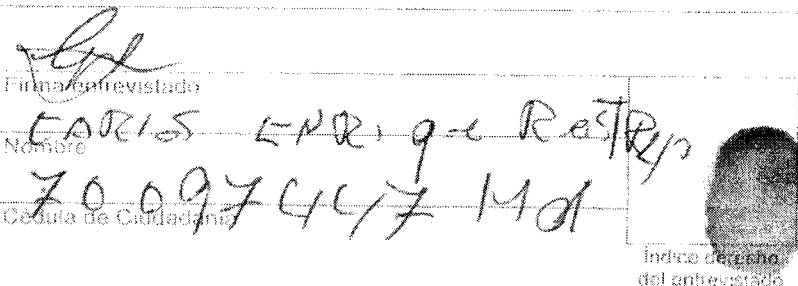 Firma entrevistado
CARLOS ENRiqUe RESTRepo
Nombre
70097447 Md
Cédula de Ciudadanía
Índice derecho
del entrevistado